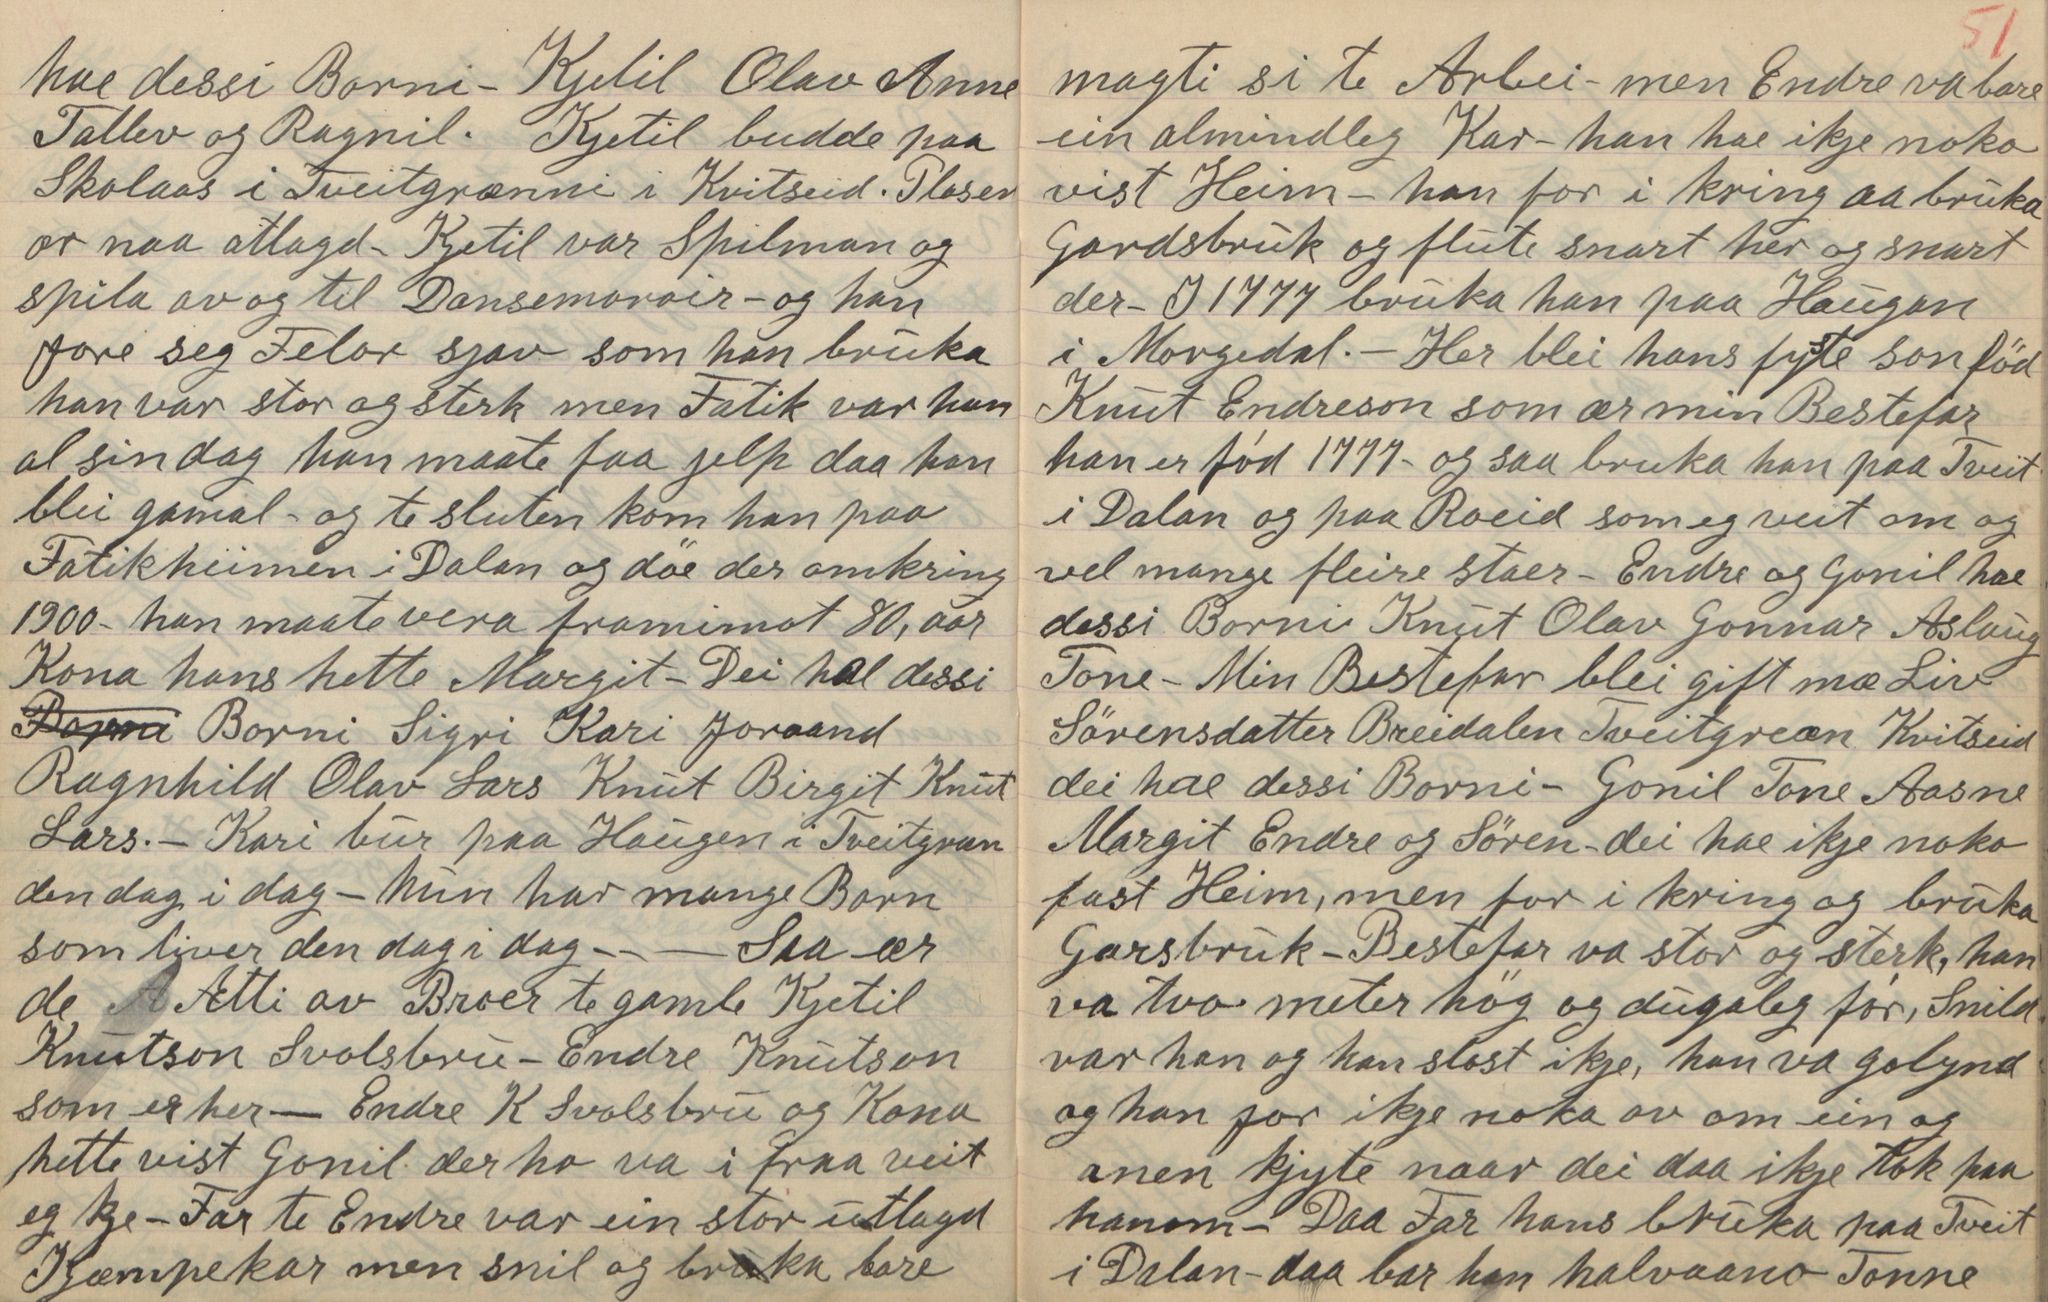 hae dessi Borni - Kjetil Olav Anne
Tallev og Ragnil. Kjetil budde paa
Skolaas i Tveitgrænni i Kvitseid. Plasen
ær naa atlagd - Kjetil var Spilman og
spila av og til Dansemoroir - og han
jore seg Felor sjav som han brŭka
han var stor og sterk men Fatik var han
al sin dag han maate faa jelp daa han
blei gamal - og te sluten kom han paa
Fatikheimen i Dalan og döe der omkring
1900 - han maate vera framimot 80, aar
Kona hans hette Margit - Dei hae dessi
Borni Borni Sigri Kari Joraand
Ragnhild Olav Lars Knŭt Birgit Knŭt
Lars. - Kari bŭr paa Haŭgen i Tveitgræn
den dag i dag - hŭn har mange Born
som liver den dag i dag - - — Saa ær
de A Ætti av Broer te gamle Kjetil
Knŭtson Svolsbrŭ - Endre Knŭtson
som er her — Endre K Svolsbrŭ og Kona
hette vist Gonil der ho va i fraa veit
eg kje - Far te Endre var ein stor ŭtlagd
Kjæmpekar men snil og brŭka bare
51
magti si te Arbei - men Endre va bare
ein almindleg Kar - han hae ikje noko
vist Heim - han for i kring aa brŭka
Gardsbrŭk og flŭte snart her og snart
der - I 1777 brŭka han paa Haŭgan
i Morgedal. - Her blei hans fyste son föd
Knŭt Endreson som ær min Bestefar
han er född 1777 - og saa bruka han paa Tveit
i Dalan og paa Roeid som eg veit om og
vel mange fleire staer - Endre og Gonil hae
dessi Borni Knŭt Olav Gonnar Aslaŭg
Tone - Min Bestefar blei gift mæ Liv
Sörensdatter Breidalen Tveitgreæn Kvitseid
dei hae dessi Borni - Gonil Tone Aasne
Margit Endre og Sören - dei hae ikje noko
fast Heim, men for i kring og brŭka
Garsbrŭk - Bestefar va stor og sterk, han
va tvo meter hög og dŭgaleg för, Snild
var han og han slost ikje, han va golynd
og han jor ikje noka av om ein og
anen kjyte naar dei daa ikje tok paa
hanom - Daa Far hans brŭka paa Tveit
i Dalan - daa bar han halvaano Tonne